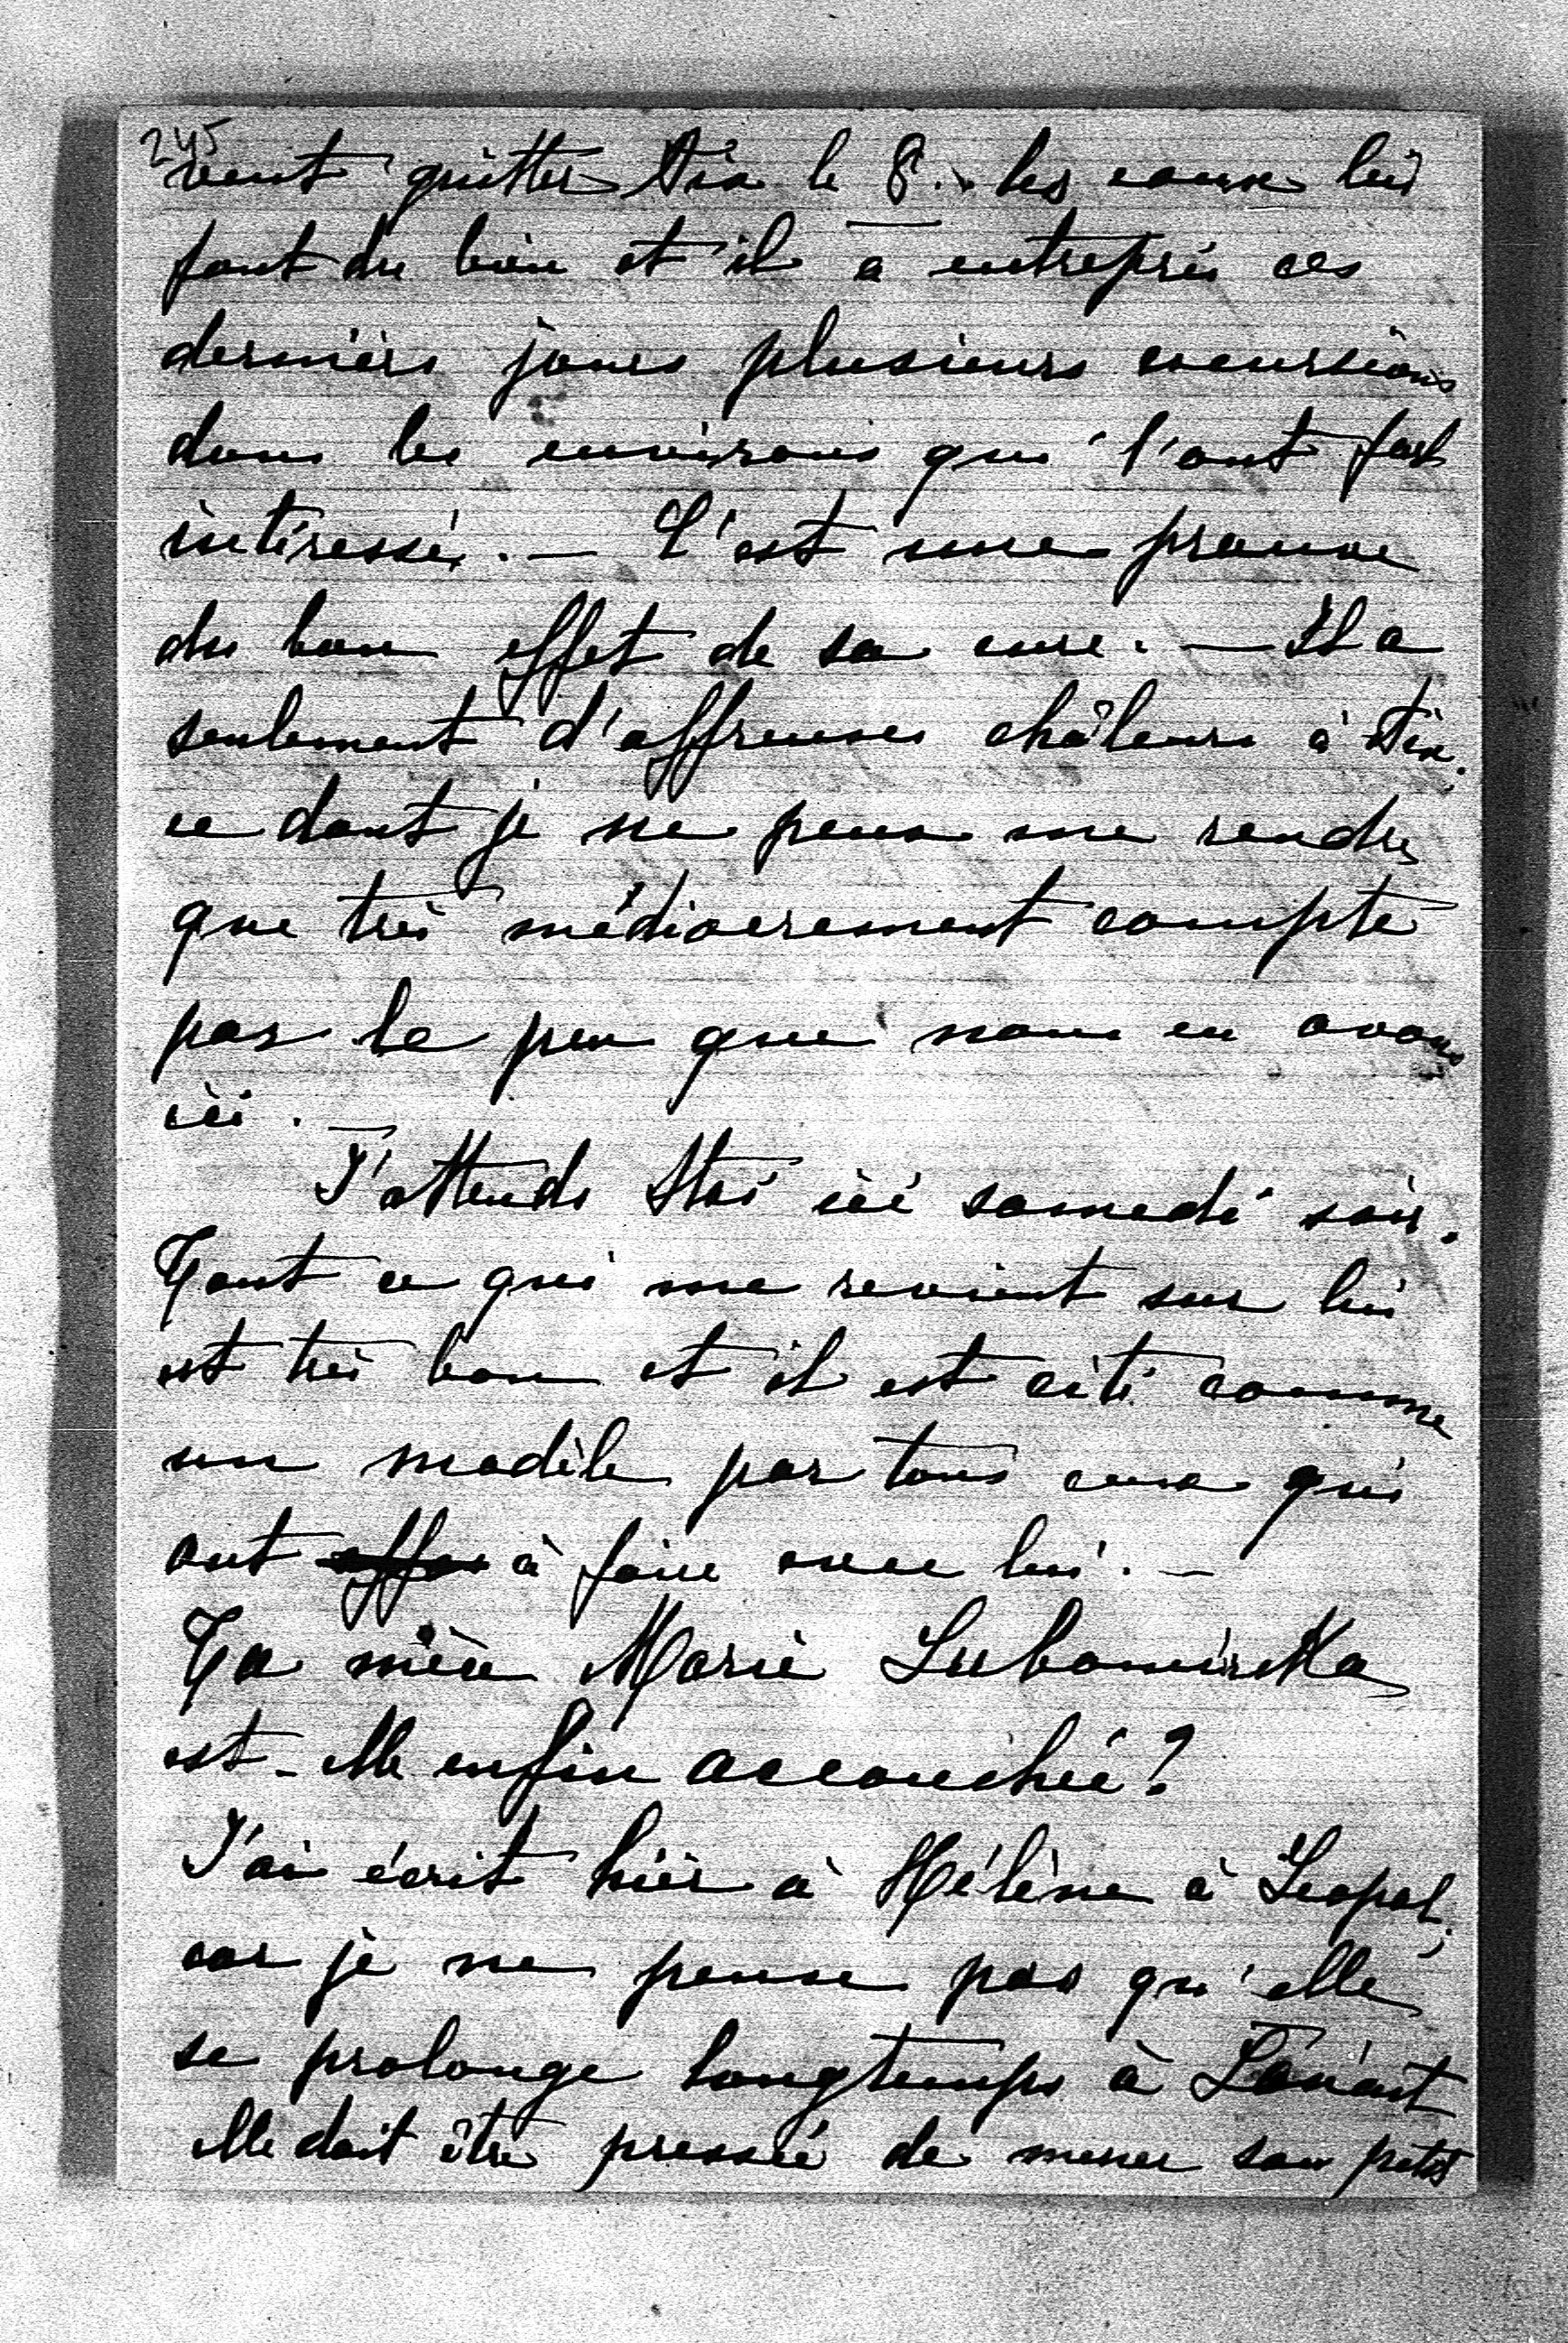 245
veut quitter Aix le 8... les eaux lui
font du bien et il a entrepris ces
derniers jours plusieurs excursions
dans les environs qui l'ont fort
intéressé. — C'est une preuve
du bon effet de sa cure. — Il a
seulement d'affreuses châleurs à Aix.
ce dont je ne peux me rendre
que très médiocrement compte
par le peu que nous en avons
ici. —
J'attends Staś ici samedi soir.
Tout ce qui me revient sur lui
est très bon et il est cité comme
un modèle par tous ceux qui
ont à faire avec lui. —
Ta nièce Marie Lubomirska
est-elle enfin accouchée?
J'ai écrit hier à Hélène à Léopol;
car je ne pense pas qu'elle
se prolonge longtemps à Łańcut
elle doit être pressée de mener son petit